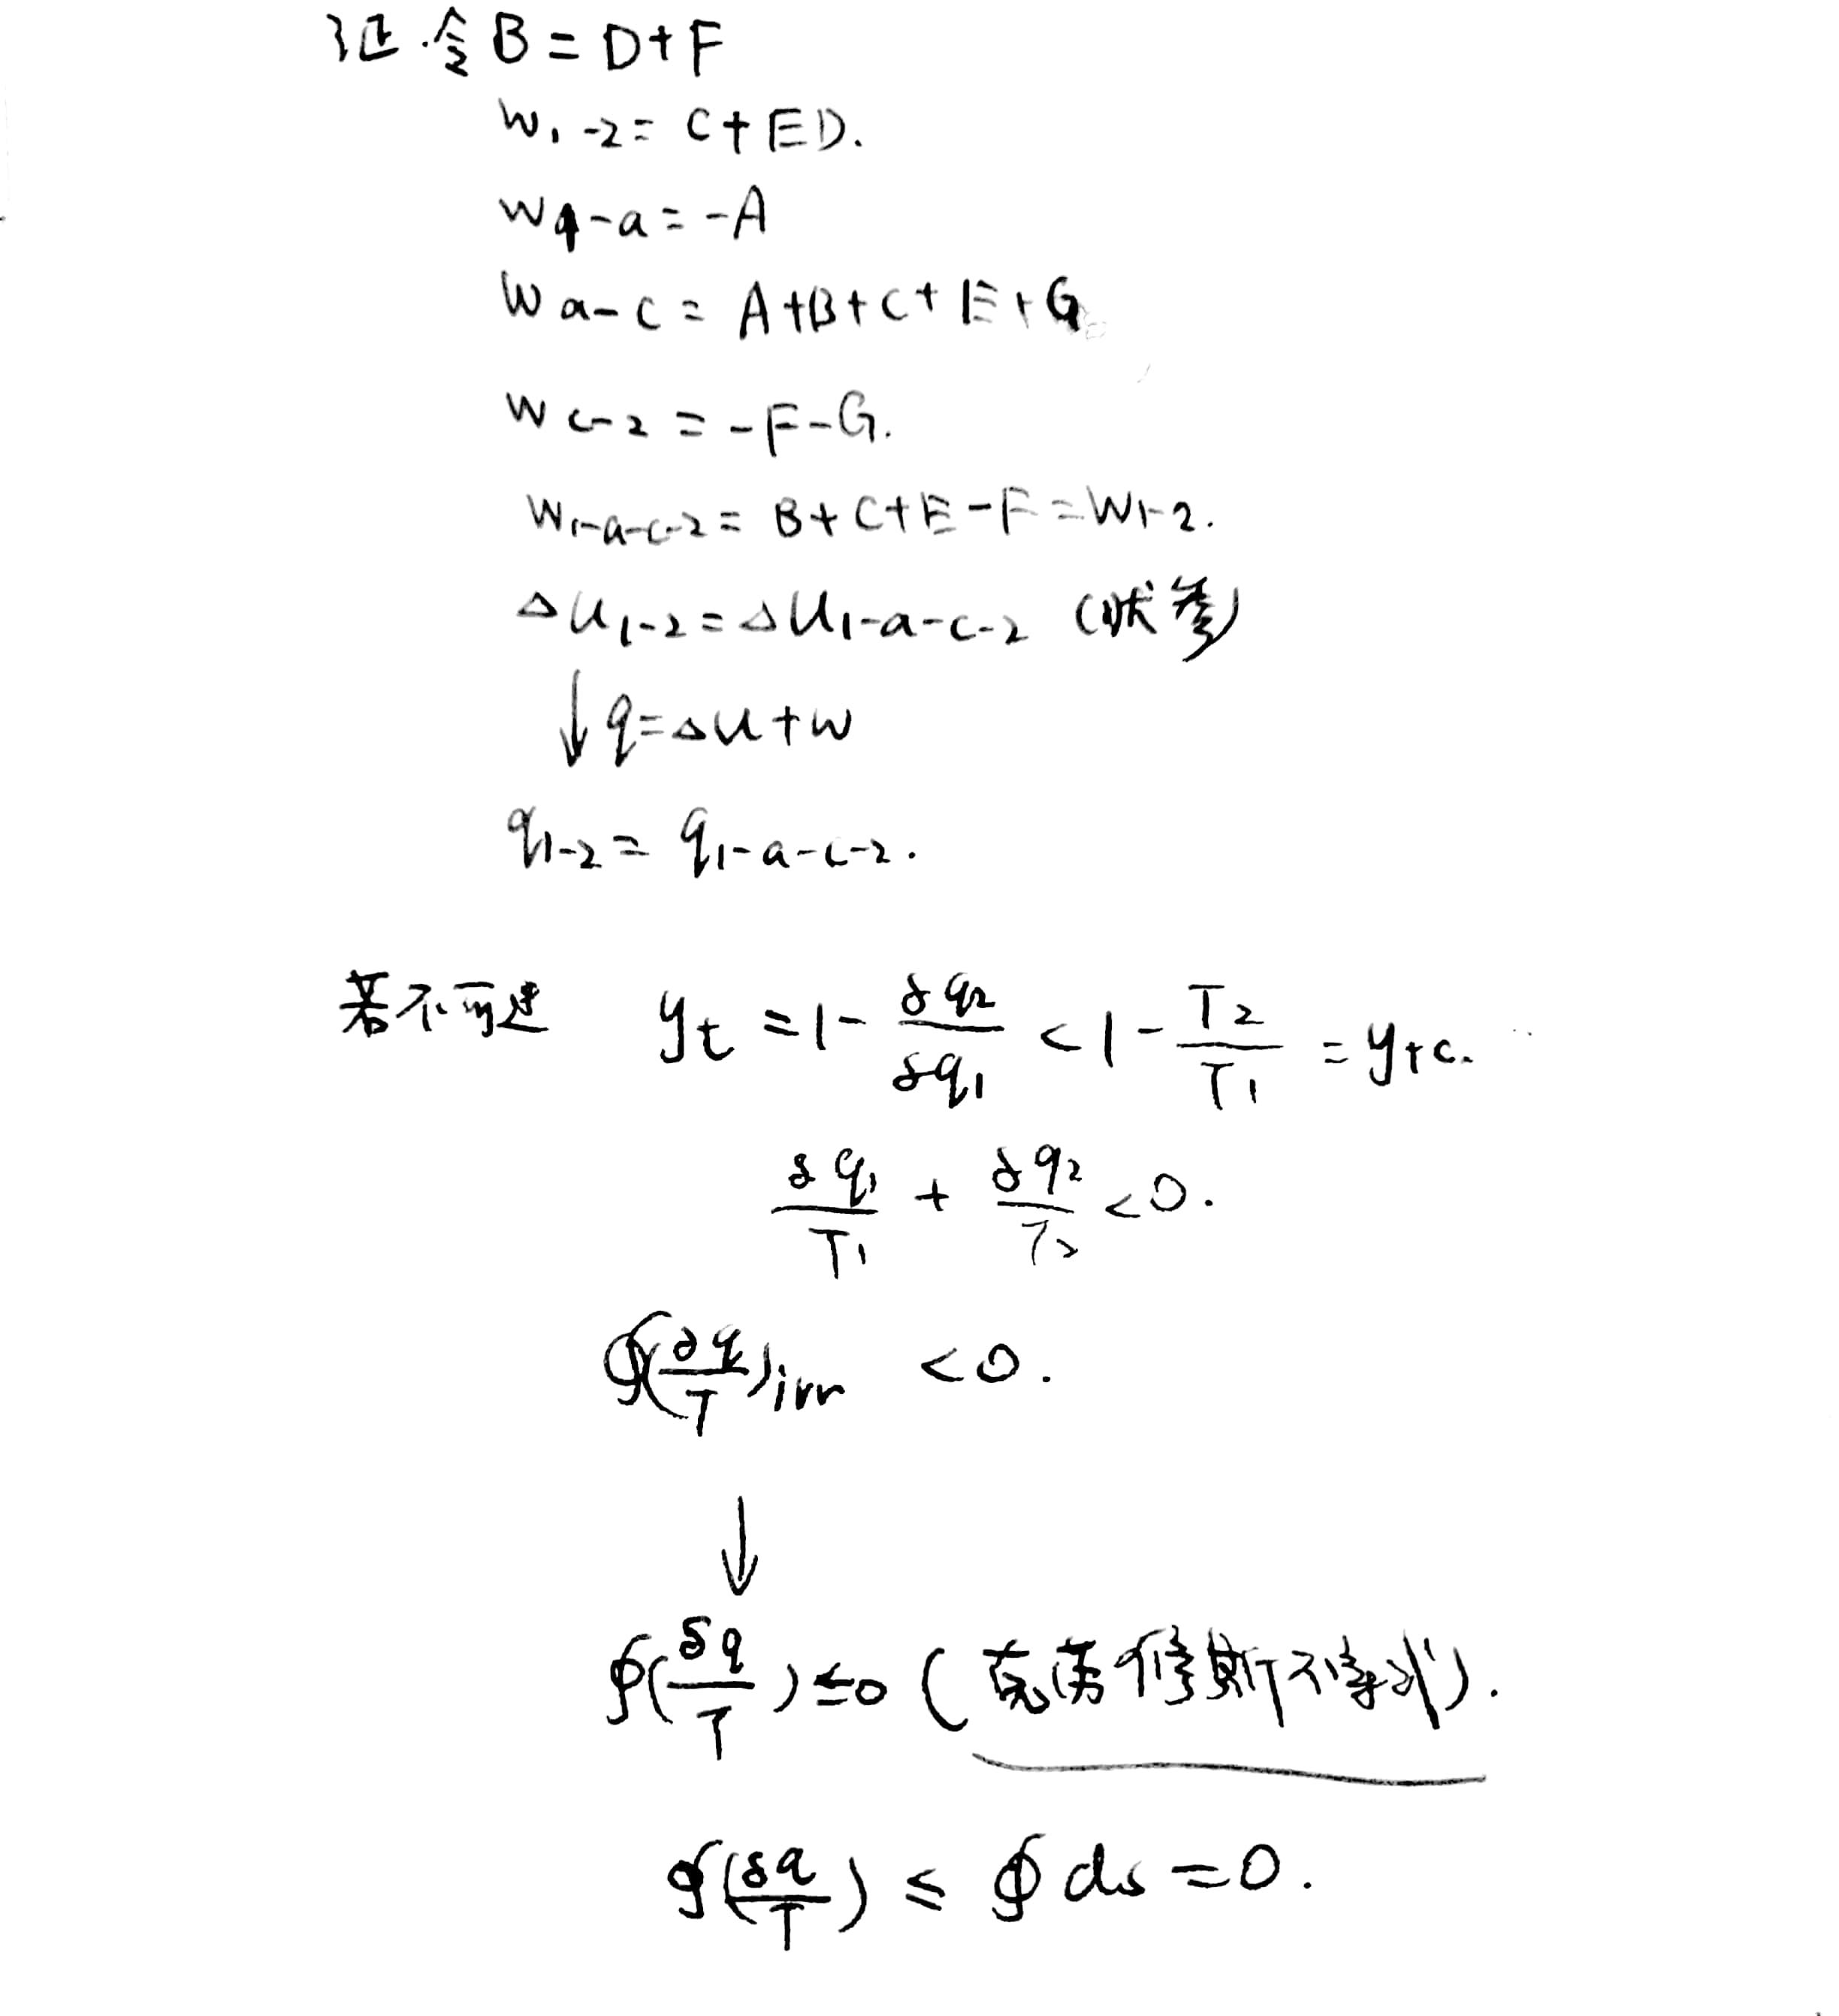 证.令 B = D+F
W₁₋₂ = C+ED.
W₁₋ₐ = -A
Wa-c = A+B+C+E+G
Wc-2 = -F-G.
W1-a-c-2 = B+C+E-F = W1-2.
△U1-2 = △U1-a-c-2 (状参)
↓ q=△u+w
q1-2 = q1-a-c-2.
若不可逆 ηt = 1- δq2/δq1 < 1- T2/T1 = ηtc.
δq1/T1 + δq2/T2 <0.
∮(δq/T)irr <0.
↓
∮(δq/T)≤0 (克劳修斯不等式).
∮(δq/T) ≤ ∮ds =0.